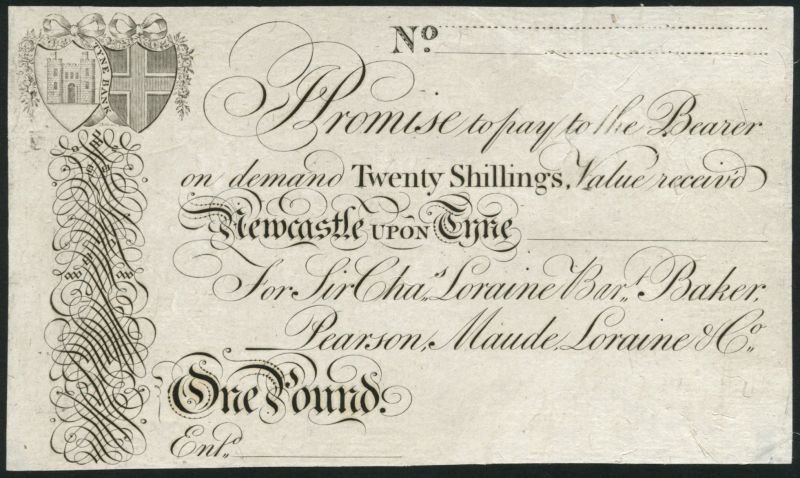 No.
TYNE BANK
I Promise to pay to the Bearer
on demand Twenty Shillings, Value receiv'd
Newcastle UPON Tyne
For Sir Chas. Loraine Bart. Baker,
Pearson, Maude, Loraine & Co.
One Pound.
Entd.